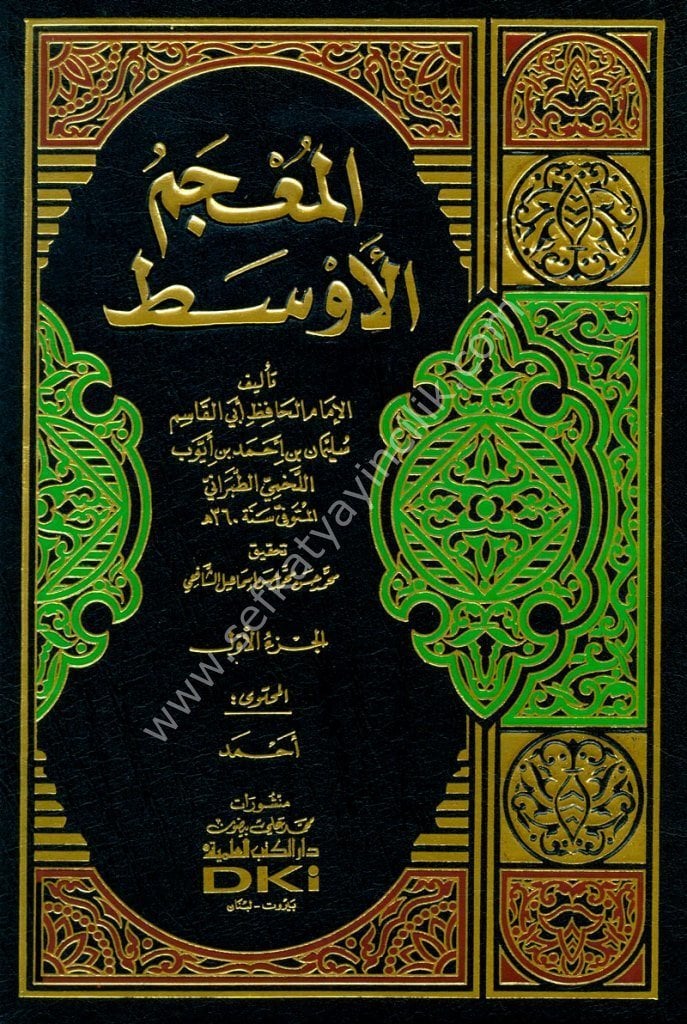 المُعْجَمُ
الأَوْسَط
تأليف
الإمام الحافظ أبي القاسم
سليمان بن أحمد بن أيوب
اللخمي الطبراني
المتوفى سنة ٣٦٠ هـ
تحقيق
محمد حسن محمد حسن إسماعيل الشافعي
الجزء الأول
المحتوى:
أحمد
منشورات
محمد علي بيضون
دار الكتب العلمية
DKi
بيروت - لبنان
www.sefkatyayincilik.com